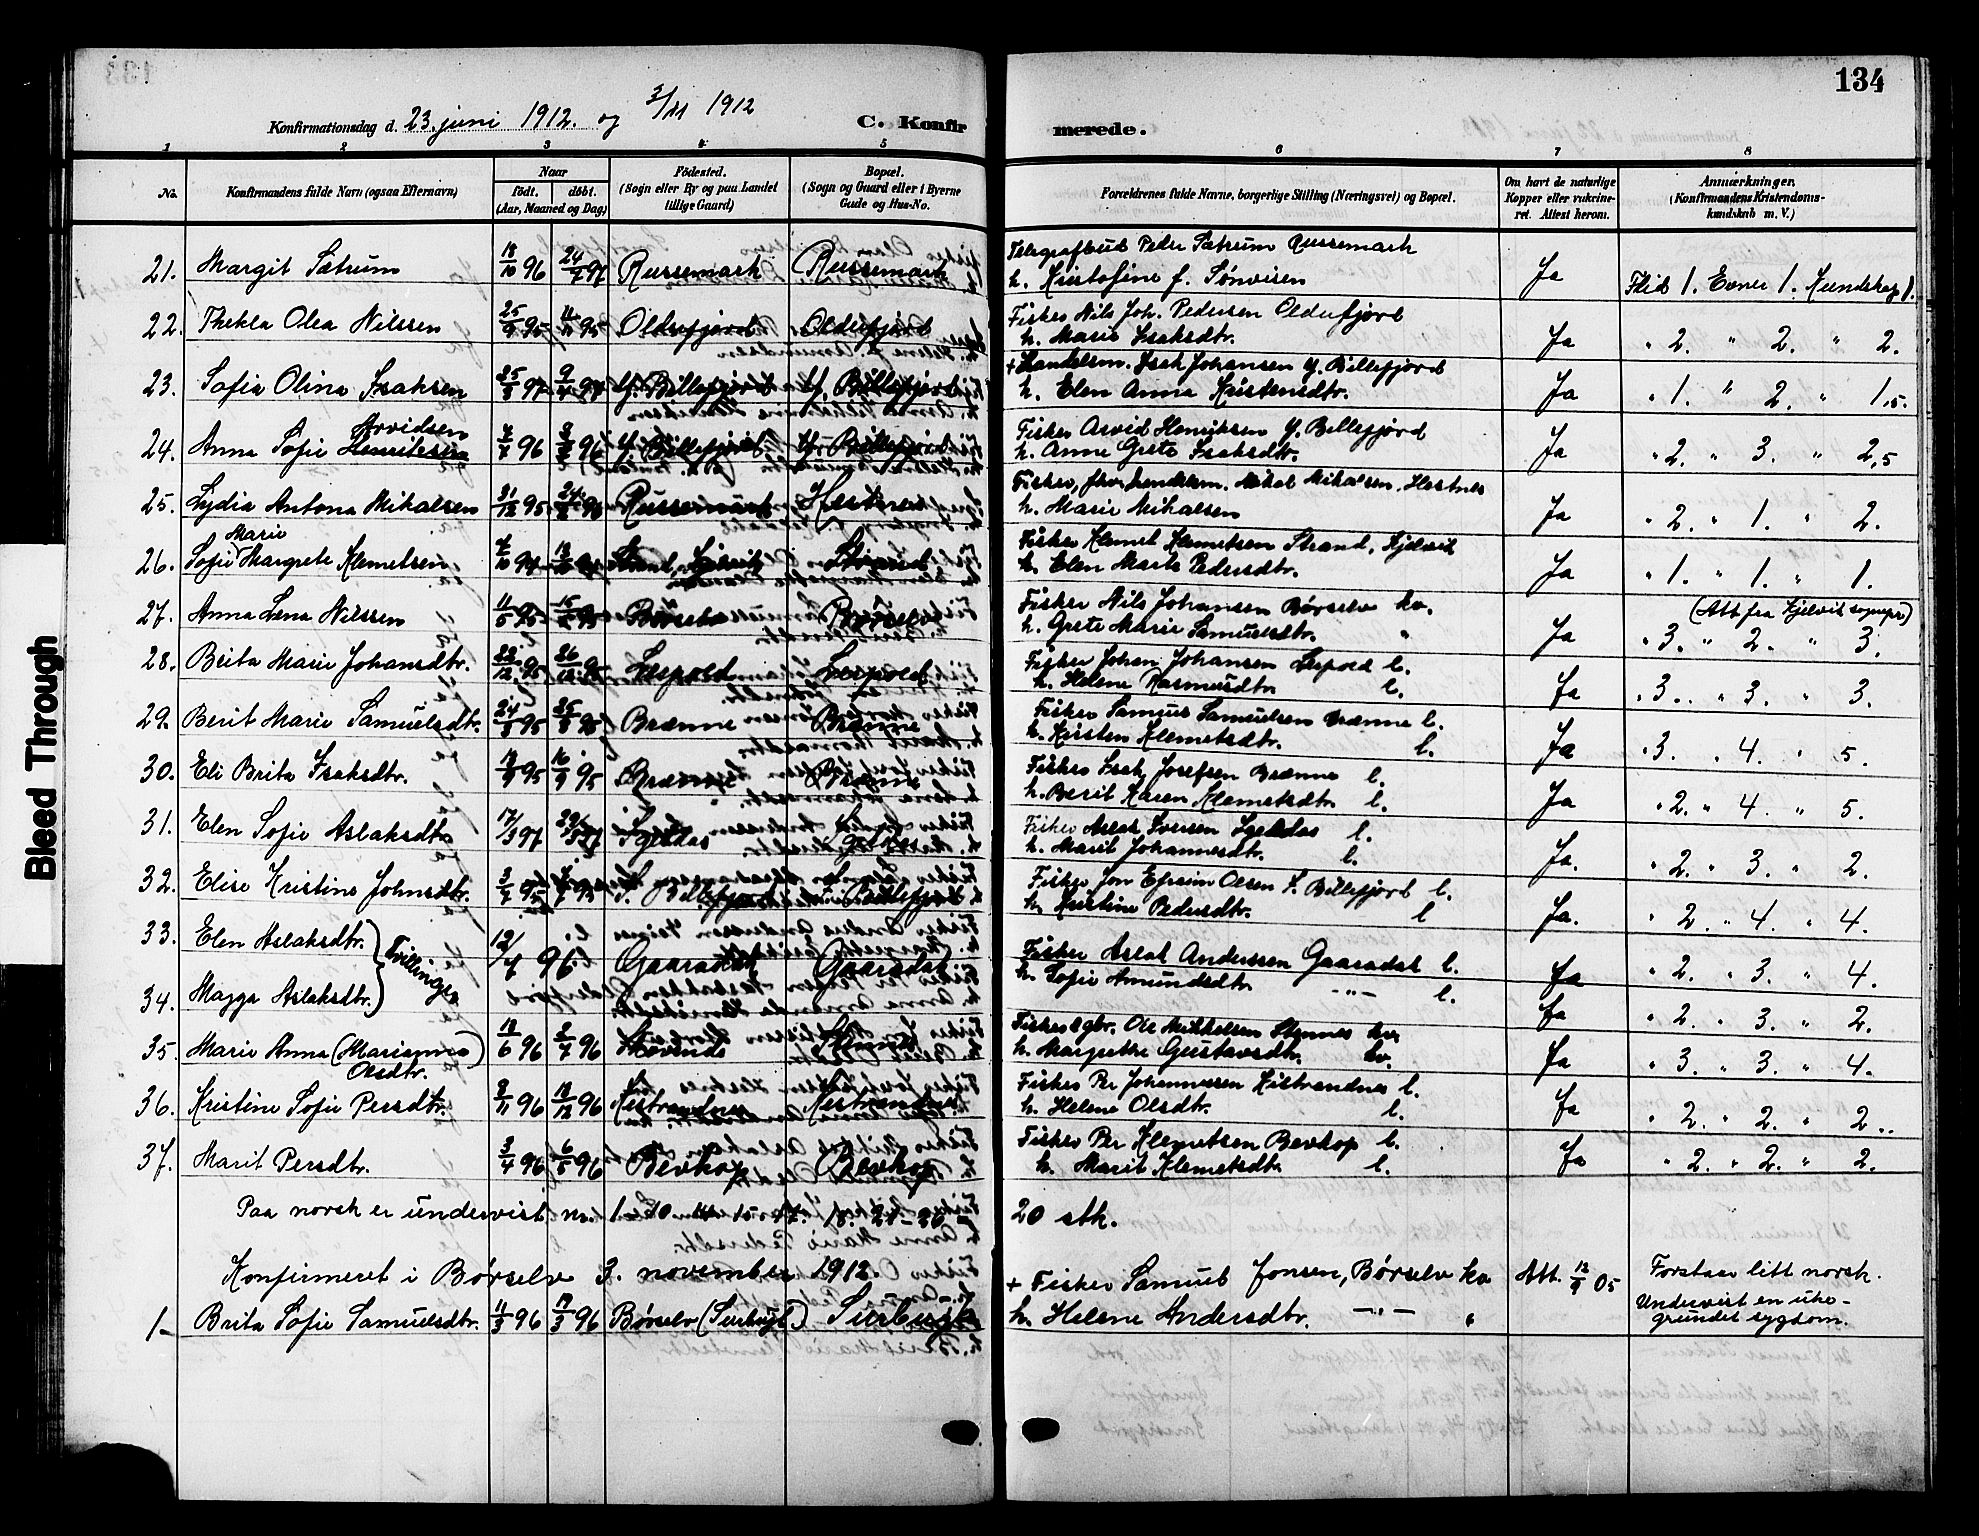 134
Konfirmationsdag d. 23. juni 1912. og 3/11 1912
C. Konfirmerede.
1 2 3 4 5 6 7 8
No.
Konfirmandens fulde Navn (ogsaa Efternavn)
Naar
født. døbt.
(Aar, Maaned og Dag)
Födested.
(Sogn eller By og paa Landet
tillige Gaard)
Bopæl.
(Sogn og Gaard eller i Byerne
Gade og Hus-No.
Forældrenes fulde Navne, borgerlige Stilling (Næringsvei) og Bopæl.
Om havt de naturlige
Kopper eller vakcine-
ret. Attest herom.
Anmærkninger.
(Konfirmandens Kristendoms-
kundskab m. V.)
21. Margit Sætrum 18/10 96 Russemark Russemark Telegrafbud Peder Sætrum Russemark
h. Kristofine f. Sønvisen Ja Flid 1. Evner 1. Kundskap 1.
22. Thekla Olea Nilssen 25/9 95 Olderfjord Olderfjord Fisker Nils Joh. Pedersen Olderfjord
h. Marie Isaksdtr. Ja " 2. " 2. " 2.
23. Sofia Olina Isaksen Y. Billefjord Y. Billefjord + Handelsm. Isak Johansen Y. Billefjord
h. Elen Anna Kristensdtr. Ja " 1. " 2. " 1,5.
Arvidsen
24. Anna Sofie Henriksen 96 96 Y. Billefjord Y. Billefjord Fisker Arvid Henriksen Y. Billefjord
h. Anne Grete Isaksdtr. Ja " 2. " 3. " 2,5
25. Lydia Antona Mikalsen 31/12 95 24/2 96 Russemark Hestnes Fisker, fhv. Mikal Mikalsen. Hestnes
h. Marie Mikalsen Ja " 2. " 1. " 2.
Marie
26. Sofie Margrete Klemetsen Strand, Kjelvik Strand Fisker Klemet Klemetsen Strand, Kjelvik
h. Elen Marta Pedersdtr. Ja " 1. " 1. " 1.
(Att. fra Kjelvik sognepr)
27. Anna Lena Nilssen 11/5 95 Børselv Børselv Fisker Nils Johansen Børselv kv.
h. Grete Marie Samuelsdtr. " Ja " 3. " 2. " 3.
28. Brita Marie Johansdtr. 22/12 95 26/12 95 Leirpold Leirpold Fisker Johan Johansen Leirpold l.
h. Helene Rasmusdtr. l. Ja " 3. " 3. " 3.
29. Berit Marie Samuelsdtr. 95 95 Brænne Brænne Fisker Samuel Samuelsen Brænne l.
h. Kirsten Klemetsdtr. l. Ja " 3. " 4. " 5.
30. Eli Brita Isaksdtr. 95 16/9 95 Brænne Brænne Fisker Isak Josefsen Brænne l.
h. Berit Karen Klemetsdtr l. Ja " 2. " 4. " 5.
31. Elen Sofie Aslaksdtr. 17/3 97 Igeldas Igeldas Fisker Aslak Iversen Igeldas l.
h. Marit Johannesdtr. l. Ja. " 2. " 3. " 2.
32. Elise Kristine Johnsdtr. 95 95 S. Billefjord S. Billefjord Fisker Jon Efraim Olsen S. Billefjord l.
h. Kristine Pedersdtr. l Ja. " 2. " 4. " 4.
33. Elen Aslaksdtr. } Tvillinger 12/4 96 Gaaradak Gaaradak Fisker Aslak Anderssen Gaaradak l.
h. Sofie Amundsdtr —"— l. Ja " 2. " 3. " 4.
34. Magga Aslaksdtr. Ja " 2. " 3. " 2.
35. Marie Anna (Marianna) 18/6 96 2/7 96 Fisker & gbr. Ole Mikkelsen kv
Olsdtr. h. Margrethe Gustavsdtr. kv. Ja " 3. " 3. " 4.
36. Kristine Sofie Persdtr. 96 18/12 96 Kistrandnes Kistrandnes Fisker Per Johannessen Kistrandnes l.
h. Helene Olsdtr. l. Ja " 2. " 2. " 2..
37. Marit Persdtr. 3/4 96 6/5 96 Bevkop Bevkop Fisker Per Klemetsen Bevkop l.
h. Marit Klemetsdtr l. Ja " 2. " 2. " 2.
Paa norsk er undervist nr. 1–10 14 15 17. 18. 21–26 = 20 stk.
Konfirmeret i Børselv 3. november 1912.
1– Brita Sofie Samuelsdtr. 11/3 96 96 Børselv + Fisker Samuel Jonsen, Børselv kv
h. Helene Andersdtr. —"— " Att. 12/9 05 Forstaar litt norsk.
Undervist en uke –
grundet sygdom.
Bleed Through